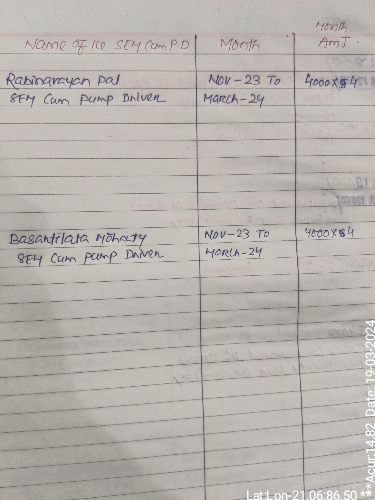 Month
Name of the SEM Cum P.D Month Amt.
Rabinarayan Pal Nov-23 To 4000x54
SEM Cum Pump Driver March-24
Basantilata Mohanty Nov-23 To 4000x54
SEM Cum Pump Driver March-24
Lat Lon-21.06:86.50 ***Acur:14.82, Date: 19-03-2024